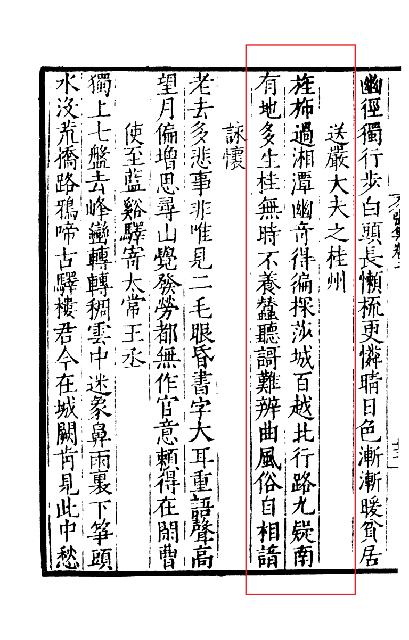 幽徑獨行步白頭長懶梳更憐晴日色漸漸暖貧居
送嚴大夫之桂州
旌旆過湘潭幽奇得徧探莎城百越北行路九疑南
有地多生桂無時不養蠶聽謌難辨曲風俗自相諳
詠懷
老去多悲事非唯見二毛眼昏書字大耳重語聲高
望月偏增思尋山覺發勞都無作官意賴得在閒曹
使至藍谿驛寄太常王丞
獨上七盤去峰巒轉轉稠雲中迷象鼻雨裏下箏頭
水沒荒橋路鴉啼古驛樓君今在城闕肯見此中愁